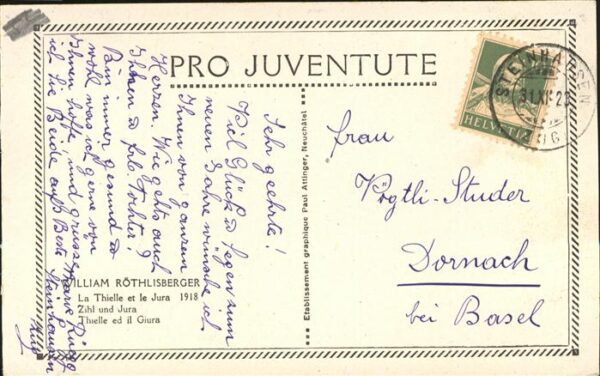 PRO JUVENTUTE
Sehr geehrte!
Viel Glück & Segen zum
neuen Jahre wünsche ich
Ihnen von ganzem
Herzen. Wie gehts auch
Ihnen & frl. Tochter?
Bin immer gesund &
wohl was ich gerne von
Ihnen hoffe, und grüsse
ich Sie Beide aufs Beste
Steinhausen
Zug
WILLIAM RÖTHLISBERGER
La Thielle et le Jura 1918
Zihl und Jura
Thielle ed il Giura
Etablissement graphique Paul Attinger, Neuchâtel
HELVETIA
STEINHAUSEN
(ZUG)
Frau
Vögtli-Studer
Dornach
bei Basel